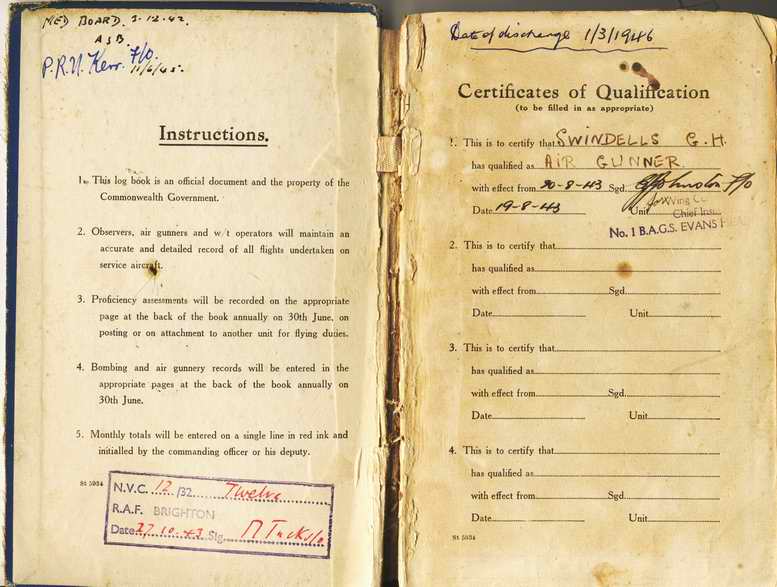 MED BOARD. 3-12-42.
A3B.
P.R.U. Kerr. F/O.
11/6/45.
Instructions.
1. This log book is an official document and the property of the
Commonwealth Government.
2. Observers, air gunners and w/t operators will maintain an
accurate and detailed record of all flights undertaken on
service aircraft.
3. Proficiency assessments will be recorded on the appropriate
page at the back of the book annually on 30th June, on
posting or on attachment to another unit for flying duties.
4. Bombing and air gunnery records will be entered in the
appropriate pages at the back of the book annually on
30th June.
5. Monthly totals will be entered on a single line in red ink and
initialled by the commanding officer or his deputy.
St 5934
N.V.C. 12 /32 Twelve
R.A.F. BRIGHTON
Date 27.10.43 Sig.
Date of discharge 1/3/1946
Certificates of Qualification
(to be filled in as appropriate)
1. This is to certify that SWINDELLS G.H.
has qualified as AIR GUNNER
with effect from 20-8-43 Sgd. Johnston F/O
Date 19-8-43 Unit
for Wing
Chief
No. 1 B.A.G.S. EVANS
2. This is to certify that
has qualified as
with effect from Sgd.
Date Unit
3. This is to certify that
has qualified as
with effect from Sgd.
Date Unit
4. This is to certify that
has qualified as
with effect from Sgd.
Date Unit
St 5934